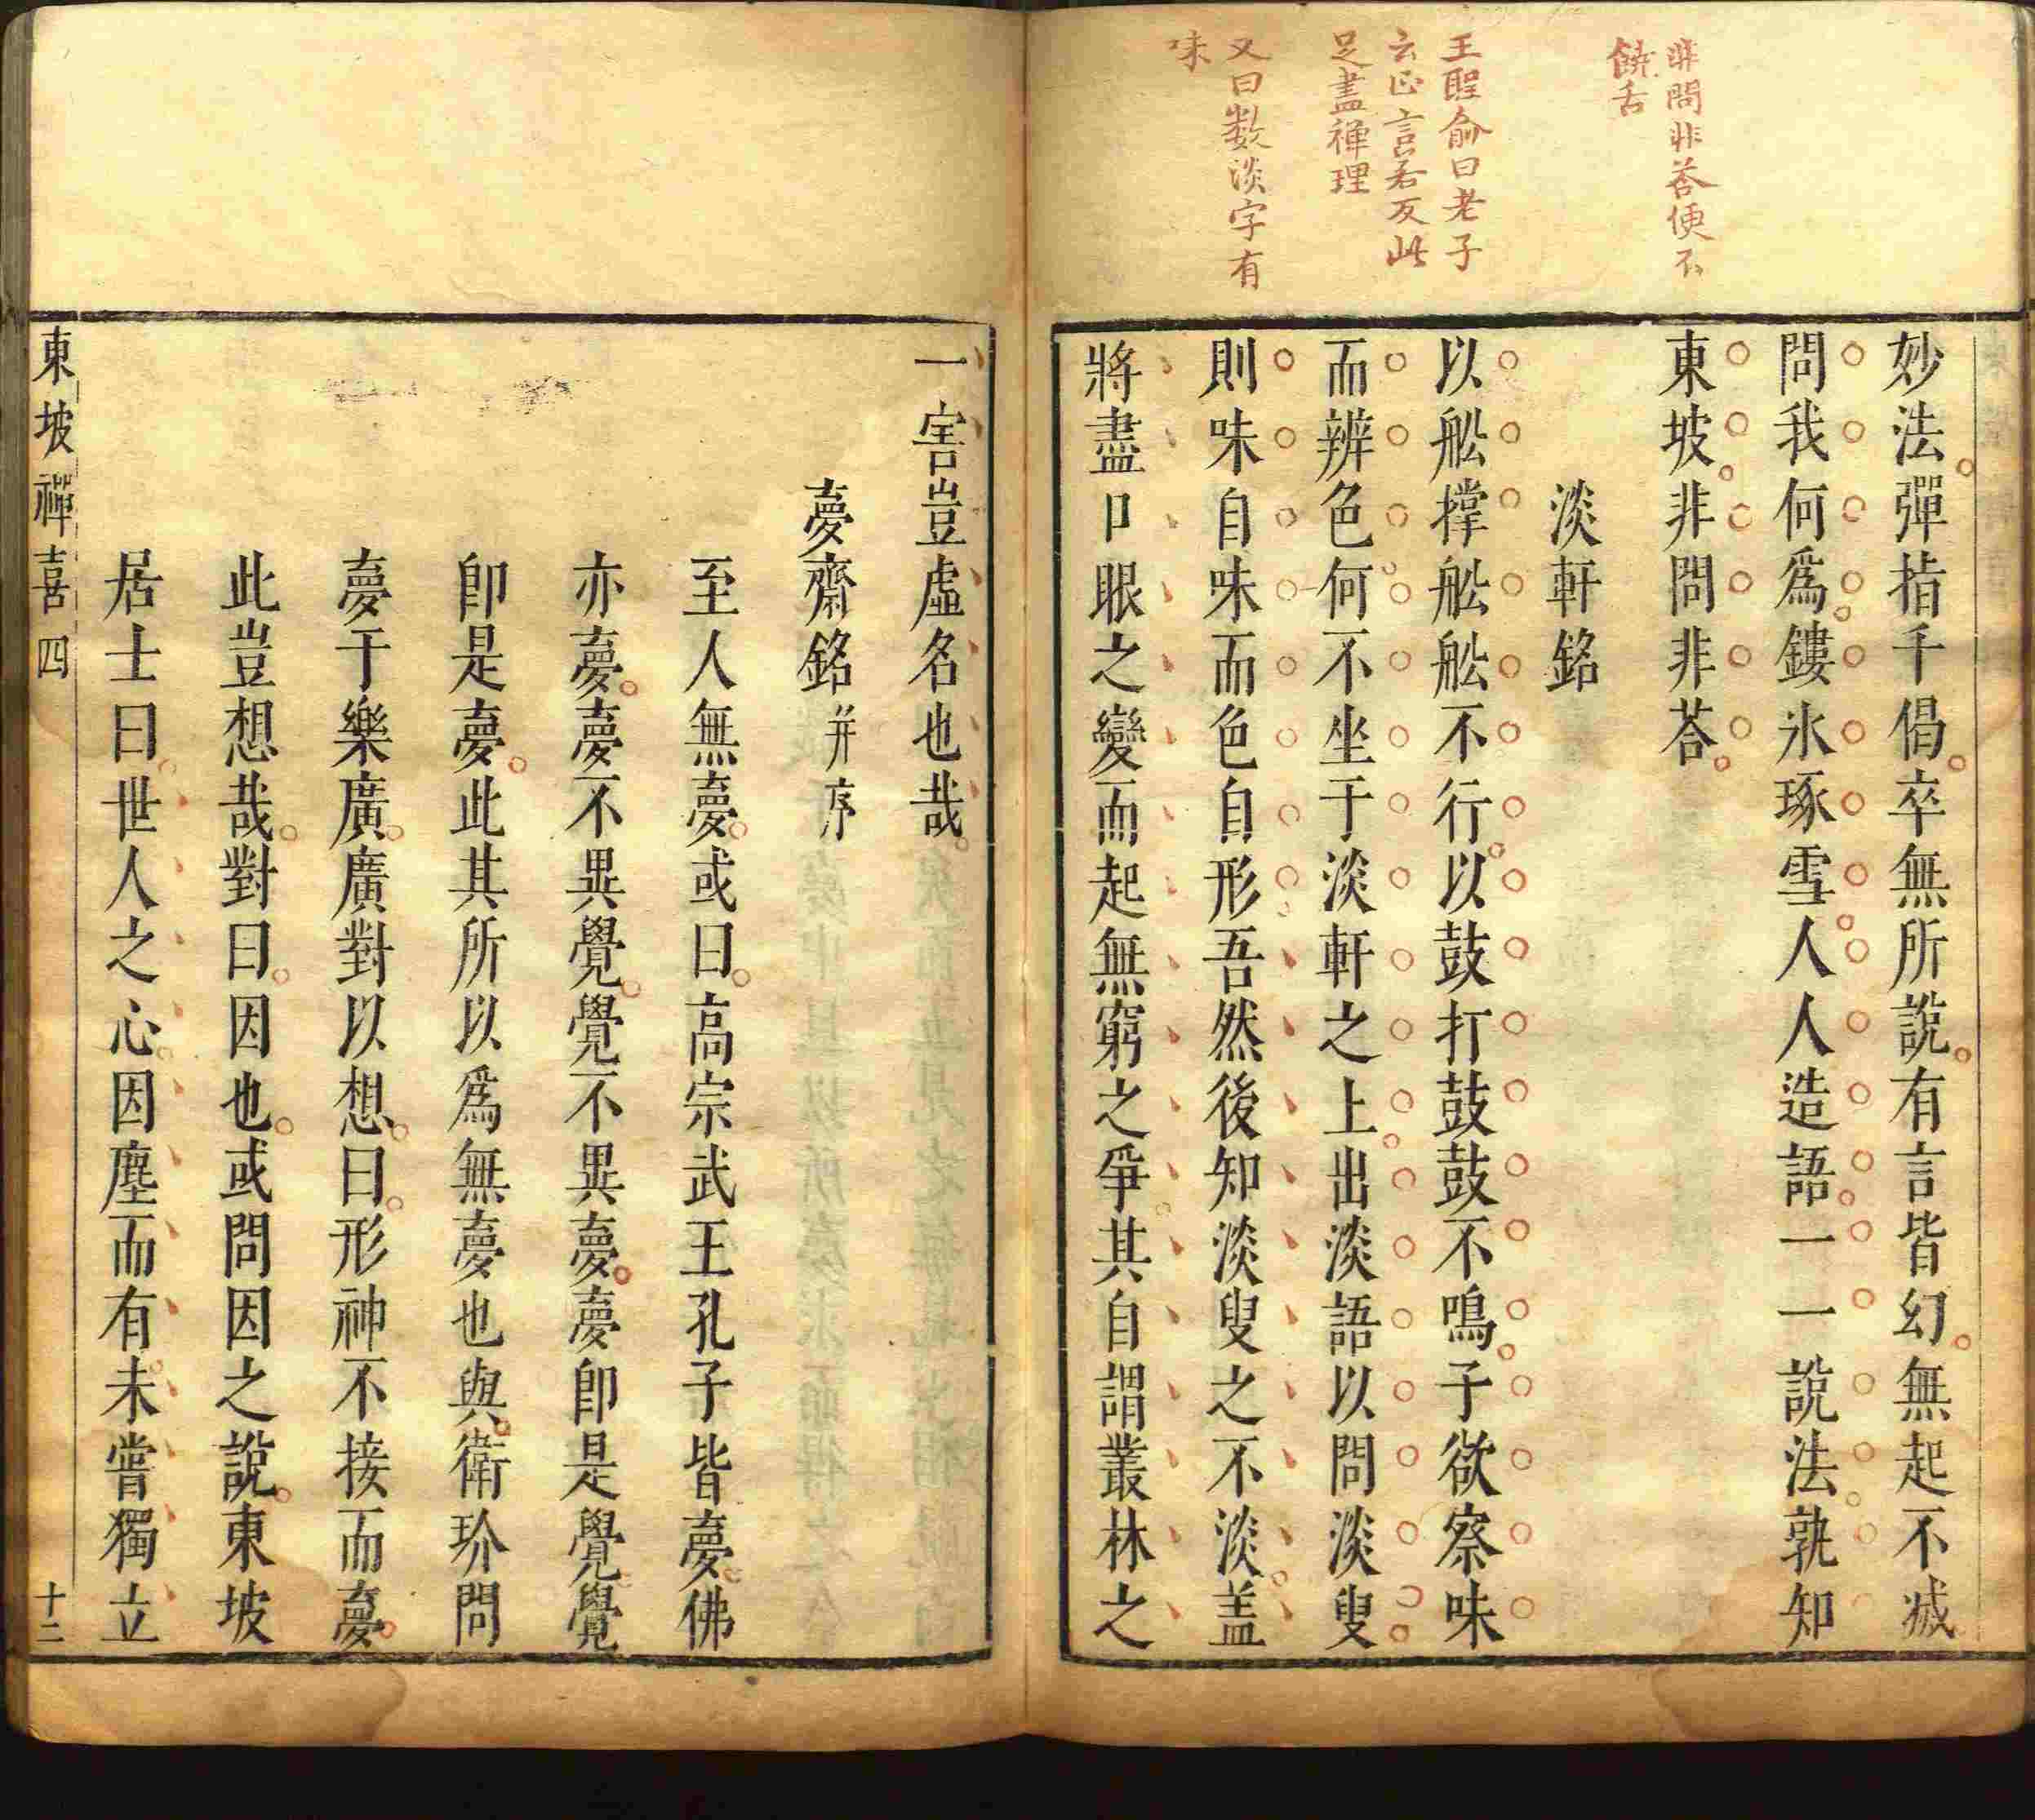 非問非荅便不
饒舌
王聖俞曰老子
云正言若反此
足盡禪理
又曰數淡字有
味
妙法彈指千偈卒無所說有言皆幻無起不滅
問我何爲鏤氷琢雪人人造語一一說法孰知
東坡非問非荅
淡軒銘
以舩撑舩舩不行以鼓打鼓鼓不鳴子欲察味
而辨色何不坐于淡軒之上出淡語以問淡叟
則味自味而色自形吾然後知淡叟之不淡盖
將盡口眼之變而起無窮之爭其自謂叢林之
一害豈虛名也哉
夢齋銘并序
至人無夢或曰高宗武王孔子皆夢佛
亦夢夢不異覺覺不異夢夢卽是覺覺
卽是夢此其所以爲無夢也與衛玠問
夢于樂廣廣對以想曰形神不接而夢
此豈想哉對曰因也或問因之說東坡
居士曰世人之心因塵而有未嘗獨立
東坡禪喜四
十二